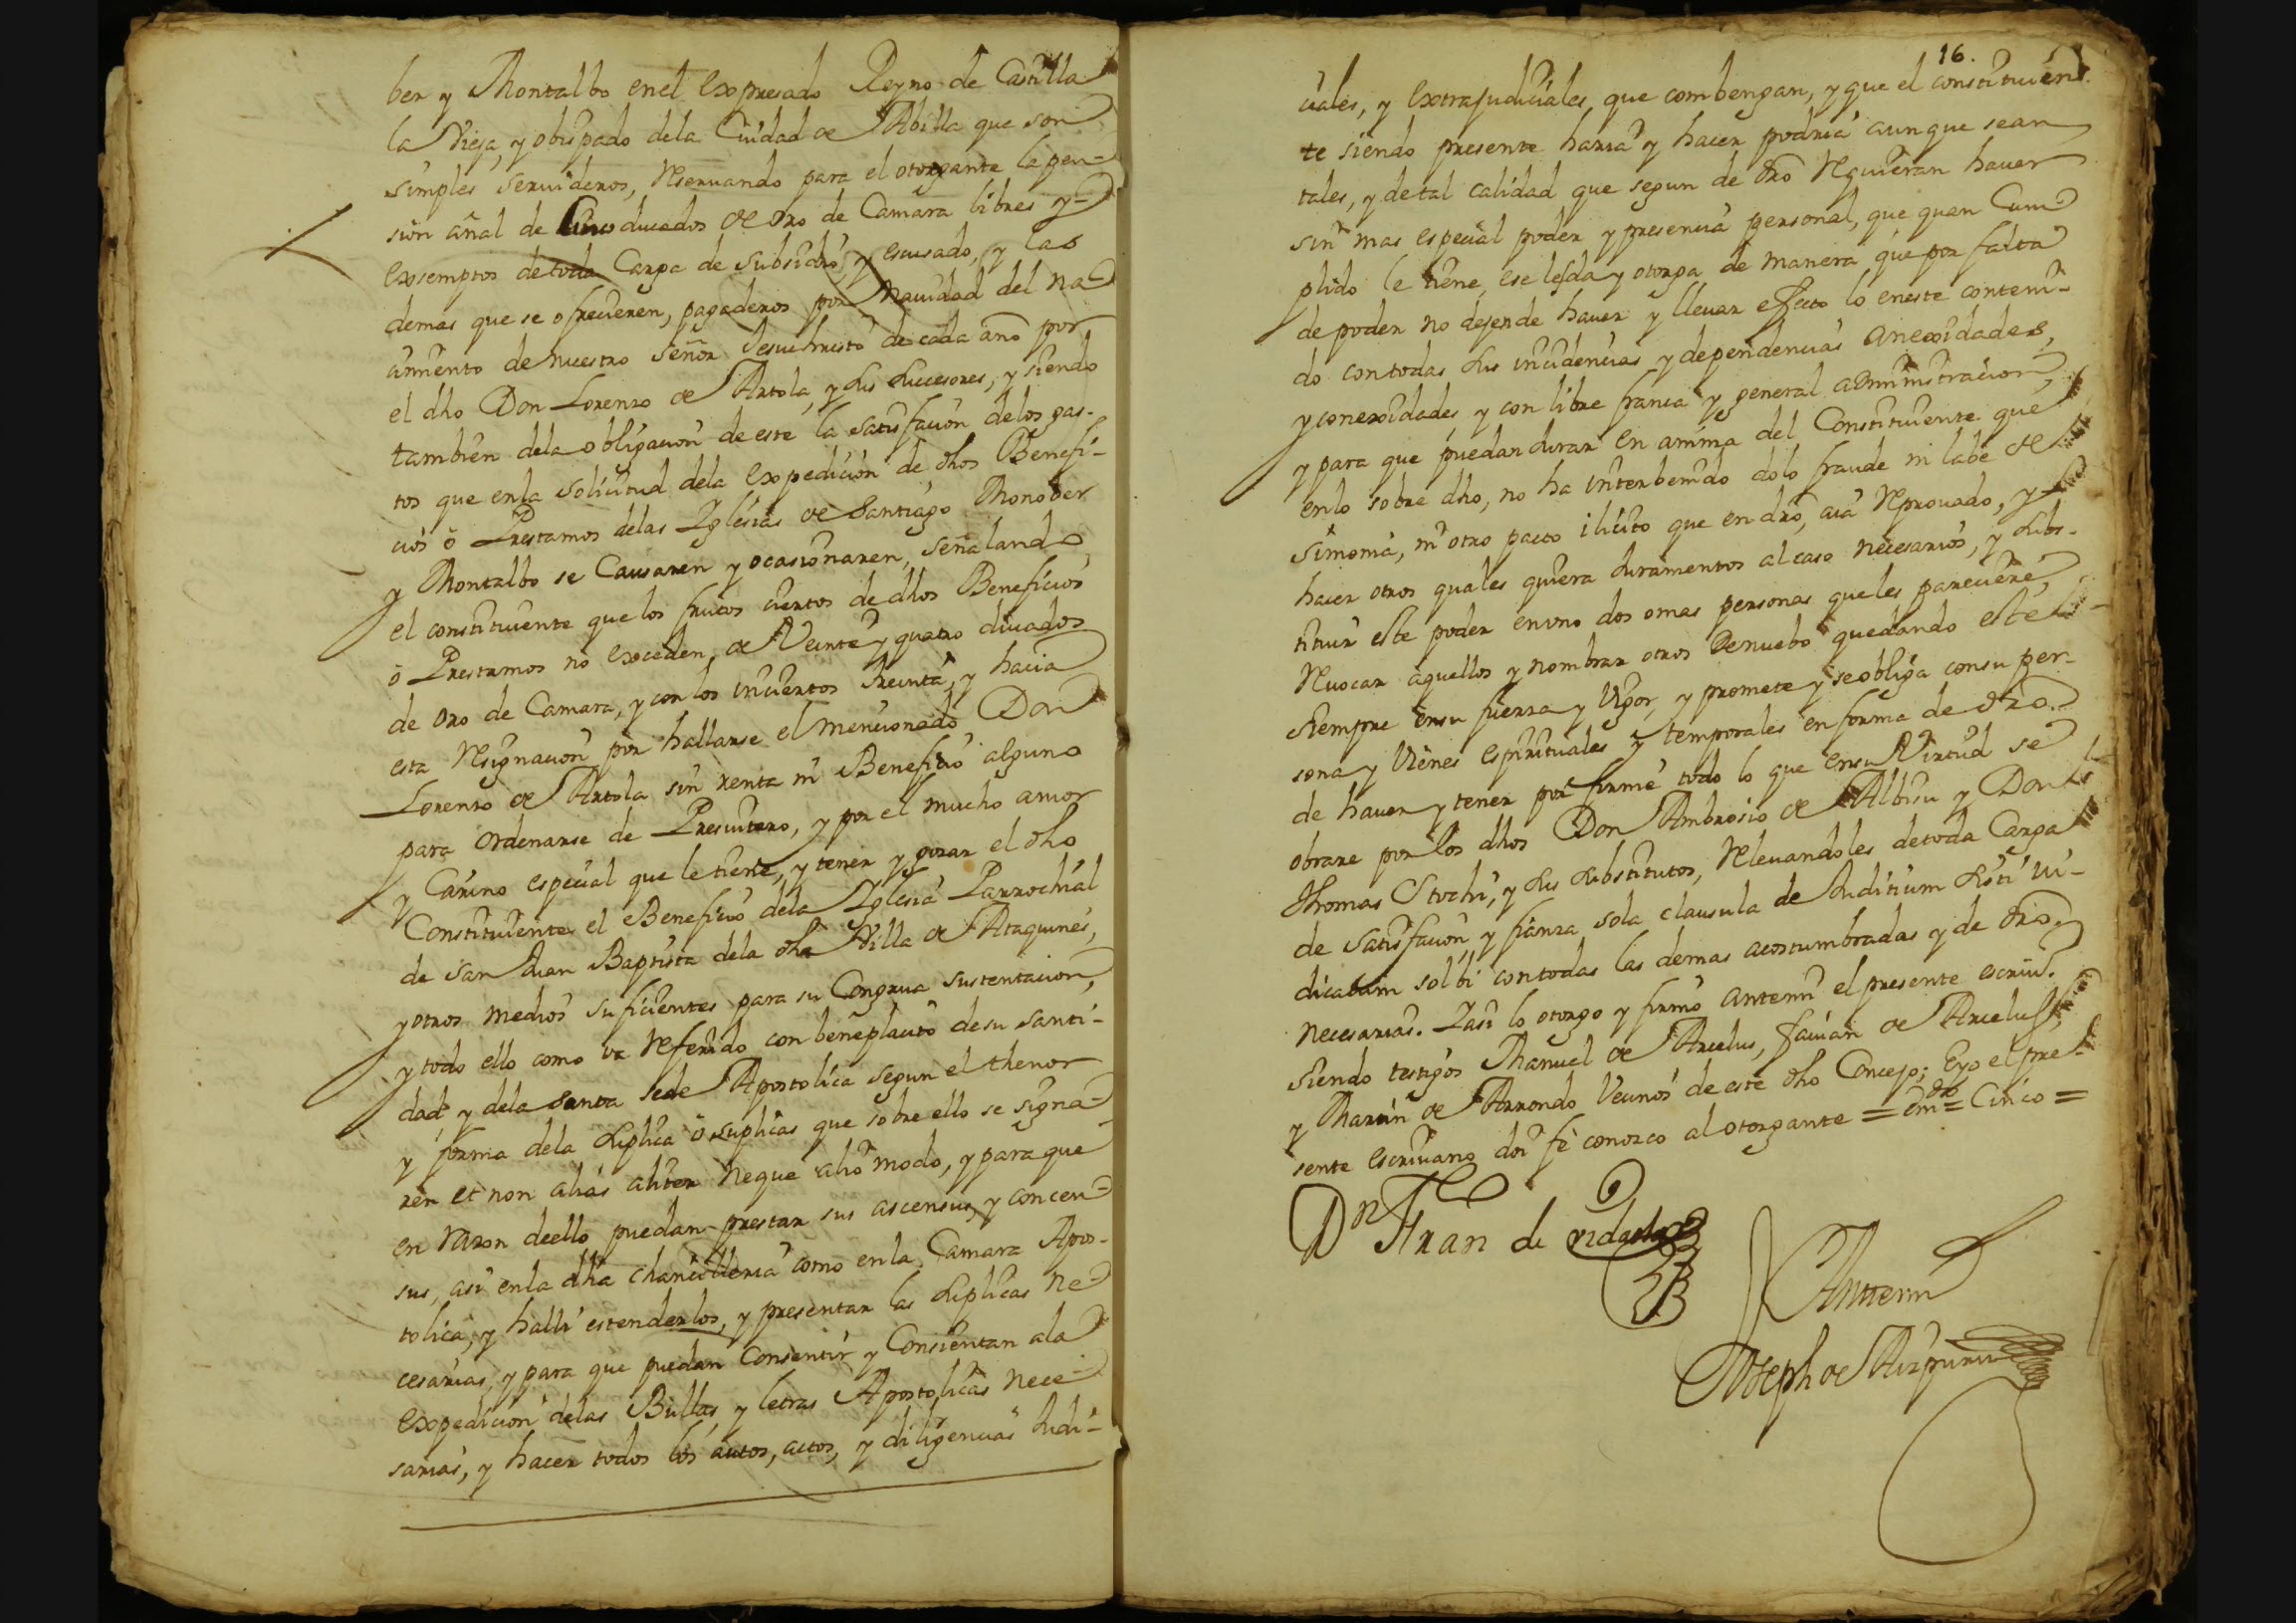 ber y Montalbo enel expresado Reyno de Castilla
la Vieja, y obispado dela Ciudad de Abilla que son
simples servideros, Reservando para el otorgante la pen-
sion añal de Cinco ducados de oro de Camara libres y-
exsemptos de toda Carga de subsidio, y escusado, y las
demas que se ofrecieren, pagaderos por Navidad del na-
cimiento de nuestro Señor Jesuchristo de cada año por
el dho Don Lorenzo de Artola, y sus succesores, y siendo
tambien dela obligacion de este la satisfacion delos gas-
tos que enla solicitud dela expedicion de dhos Benefi-
cios ô Prestamos delas Yglesias de Santiago Monober
y Montalbo se Causaren y ocasionaren, señalando
el constituiente que los frutos ciertos de dhos Beneficios
ô Prestamos no exceden de Veinte y quatro ducados
de oro de Camara, y con los inciertos treinta, y hacia
esta Resignacion por hallarse el mencionado Don
Lorenzo de Artola sin renta ni Beneficio alguno
para ordenarse de Presvitero, y por el mucho amor
y Cariño especial que le tiene, y tener y gozar el dho
Constituiente el Beneficio dela Yglesia Parrochial
de San Juan Baptista dela dha Villa de Ataquines,
y otros medios suficientes para su Congrua sustentacion,
y todo ello como va Referido con beneplacito de su santi-
dad, y dela Santa Sede Apostolica segun el thenor
y forma dela suplica ô suplicas que sobre ello se signa-
ren et non alias aliter neque alio modo, y para que
en razon deello puedan prestar sus ascensus, y concen-
sus, asi enla dha chancilleria como enla Camara Apos-
tolica, y halli estenderlos, y presentar las suplicas ne-
cesarias, y para que puedan Consentir y Consientan ala
expedicion delas Bullas, y letras Apostolicas nece-
sarias, y hacer todos los autos, actos, y diligencias Judi-
16.
ciales, y extrajudiciales, que combengan, y que el constituien-
te siendo presente haria y hacer podria aunque sean
tales, y de tal calidad que segun de dro Requieran haver
sin mas especial poder y presencia personal, que quan Cum
plido le tiene, ese les da y otorga de manera que por falta
de poder no dejen de haver y llevar effecto lo eneste conteni-
do con todas sus incidencias y dependencias anexidades,
y conexidades, y con libre franca y general administracion,
y para que puedan Jurar en anima del Constituiente que
enlo sobre dho, no ha interbenido dolo fraude ni labe de
simonia, ni otro pacto ilicito que en dro, cia Reprovado, y
hacer otros quales quiera Juramentos al caso necesarios, y subs-
tituir este poder en vno dos o mas personas queles pareciere,
Revocar aquellos y nombrar otros Denuebo quedando este
siempre en su fuerza y Vigor, y promete y se obliga con su per-
sona y Vienes espirituales y temporales en forma de dro.
de haver y tener por firme todo lo que en su Virtud se
obrare por los dhos Don Ambrosio de Albisu y Don
Thomas Stochi, y sus substitutos, Relevandoles de toda Carga
de satisfacion, y fianza sola clausula de Juditium sisti Iu-
dicatum solbi con todas las demas acostumbradas y de dro
necesarias. Y asi lo otorgo y firmo antemi el presente escriu.
siendo testigos Manuel de Arcelus, Favian de Arcelus,
y Martin de Arrondo Vecinos de este dho Concejo; E yo el pre-
sente escrivano doi fe conozco al otorgante = Emdo = Cinco =
Dn Fran de vidarte
Antemi
Joseph de Aizpuru